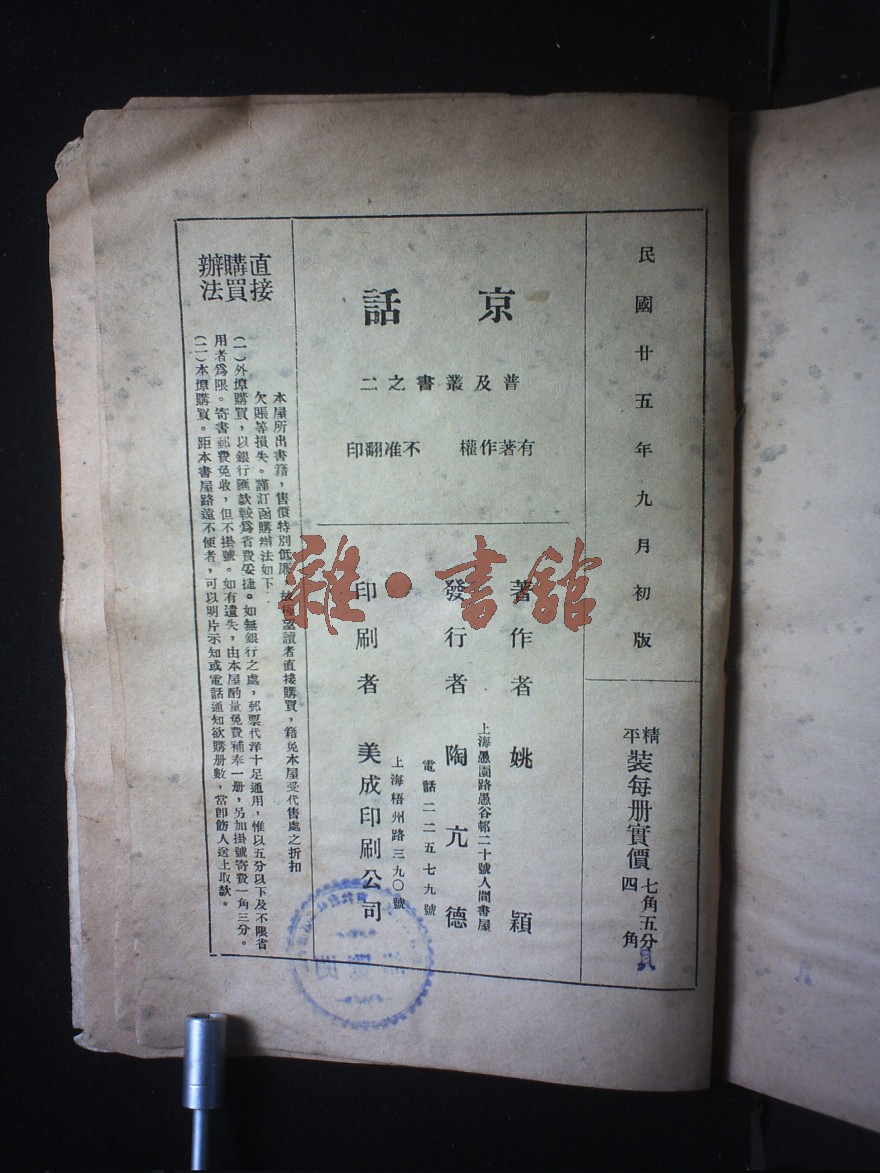 民國廿五年九月初版
精平裝每册實價七角五分四角
京話
普及叢書之二
有著作權 不准翻印
著作者 姚穎
發行者 陶亢德
上海愚園路愚谷邨二十號人間書屋
電話二二五七九號
印刷者 美成印刷公司
上海梧州路三九〇號
直接購買辦法
本屋所出書籍，售價特別低廉，故極望讀者直接購買，籍免本屋受代售處之折扣
欠賬等損失。謹訂函購辦法如下：
(一)外埠購買，以銀行匯款較爲省費妥捷。如無銀行之處，郵票代洋十足通用，惟以五分以下及不限省
用者爲限。寄書郵費免收，但不掛號。如有遺失，由本屋酌量免費補奉一册，另加掛號寄費一角三分。
(二)本埠購買。距本書屋路遠不便者，可以明片示知或電話通知欲購册數，當卽飭人送上取款。
雜·書館